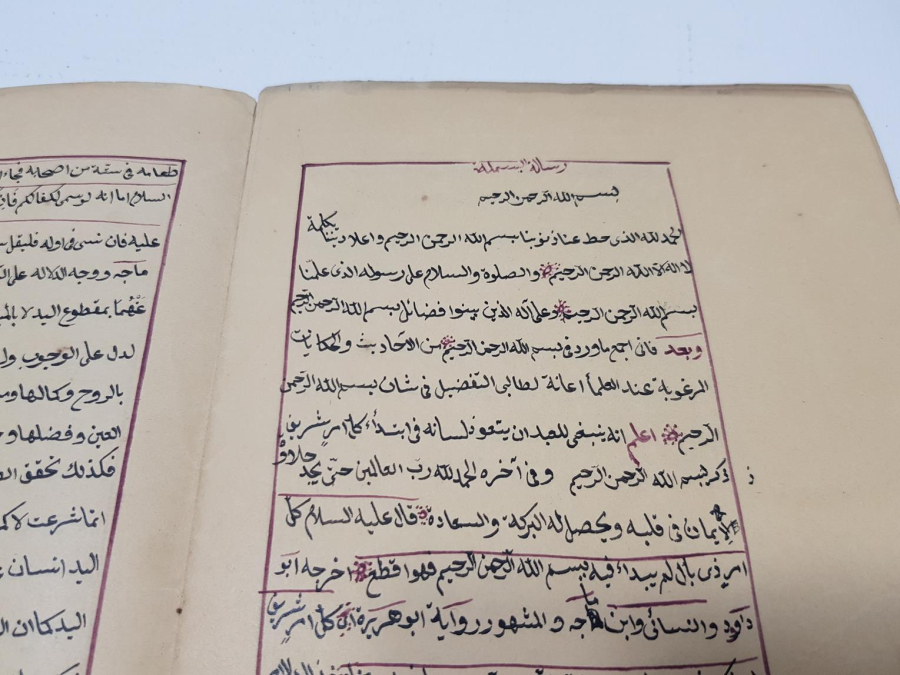 رسالة البسملة
بسم الله الرحمن الرحيم
الحمد لله الذى حط عنا ذنوبنا بسم الله الرحمن الرحيم واعلا ديننا بكلمة
الله الرحمن الرحيم والصلوة والسلام على رسوله الذى علمنا
بسم الله الرحمن الرحيم وعلى آله الذين بينوا فضائل بسم الله الرحمن الرحيم
وبعد فانى اجمع ما ورد فى بسم الله الرحمن الرحيم من الاحاديث والحكايات
المرغوبة عند العلمأ اعانة لطالبى التفضيل فى شان بسم الله الرحمن
الرحيم اعلم انه ينبغى للعبد ان يتعود لسانه فى ابتدأء كل امر شريف
ذكر بسم الله الرحمن الرحيم وفى آخره الحمد لله رب العالمين حتى يجد حلاوة
الايمان فى قلبه ويحصل له البركة والسعادة قال عليه السلام كل
امر ذى بال لم يبداء فيه ببسم الله الرحمن الرحيم فهو اقطع اخرجه ابو
داود والنسائى وابن ماجه والمشهور رواية ابو هريرة كل امر شريف
طعامه فى ستة من اصحابه فجاء
السلام اما انه لو سمى لكفاكم فاذا
عليه فان نسى فى اوله فليقل
ماجه ووجه الدلاله على
بمقطوع اليد لا
لدل على الوجوب
بالروح وكمالها
العين وفضلها
فكذلك تحقق
انما شرعت
اليد انسان
اليد كما ان